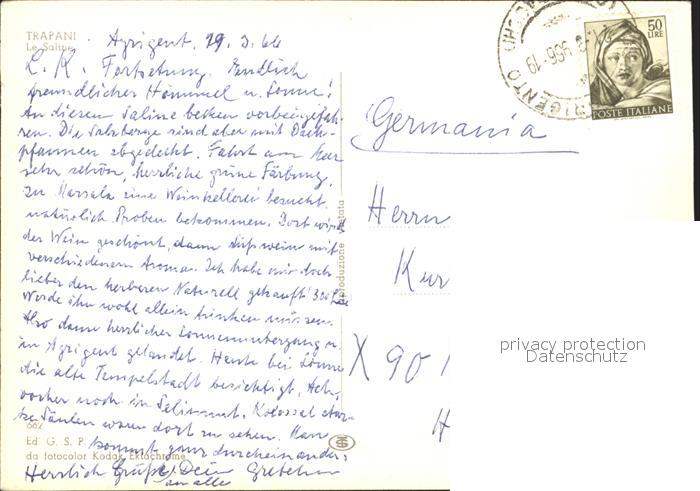 TRAPANI
Le Saline
Agrigent, 29.3.66
L. K. Fortsetzung. Endlich
freundlicher Himmel u. Sonne!
An diesen Saline becken vorbeigefah-
ren. Die Salzberge sind aber mit Dach-
pfannen abgedeckt. Fahrt am Meer
sehr schön, herrliche grüne Färbung,
in Marsala eine Weinkellerei besucht,
natürlich Proben bekommen. Dort wird
der Wein geschönt, dann Süßwein mit
verschiedenem Aroma. Ich habe mir doch
lieber den herberen Naturell gekauft! 300 Lire
Werde ihn wohl allein trinken müssen.
Also dann herrlicher Sonnenuntergang u.
in Agrigent gelandet. Heute bei Sonne
die alte Tempelstadt besichtigt,
vorher noch in Selinunt. Kolossal star-
ke Säulen waren dort zu sehen. Man
kommt ganz durcheinander.
Herrlich Grüße Dein Gretchen
an alle
662
Ed. G. S. P.
da fotocolor Kodak Ektachrome
riproduzione vietata
GS
AGRIGENTO
1966
50
LIRE
POSTE ITALIANE
Germania
Herrn
Kur
X 901
H
privacy protection
Datenschutz